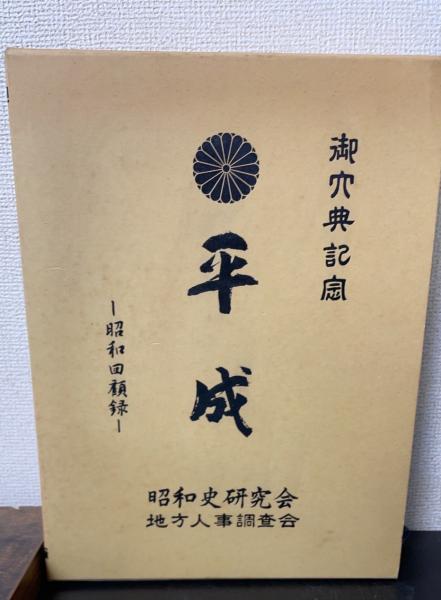 御大典記念
平成
―昭和回顧録―
昭和史研究会
地方人事調査会